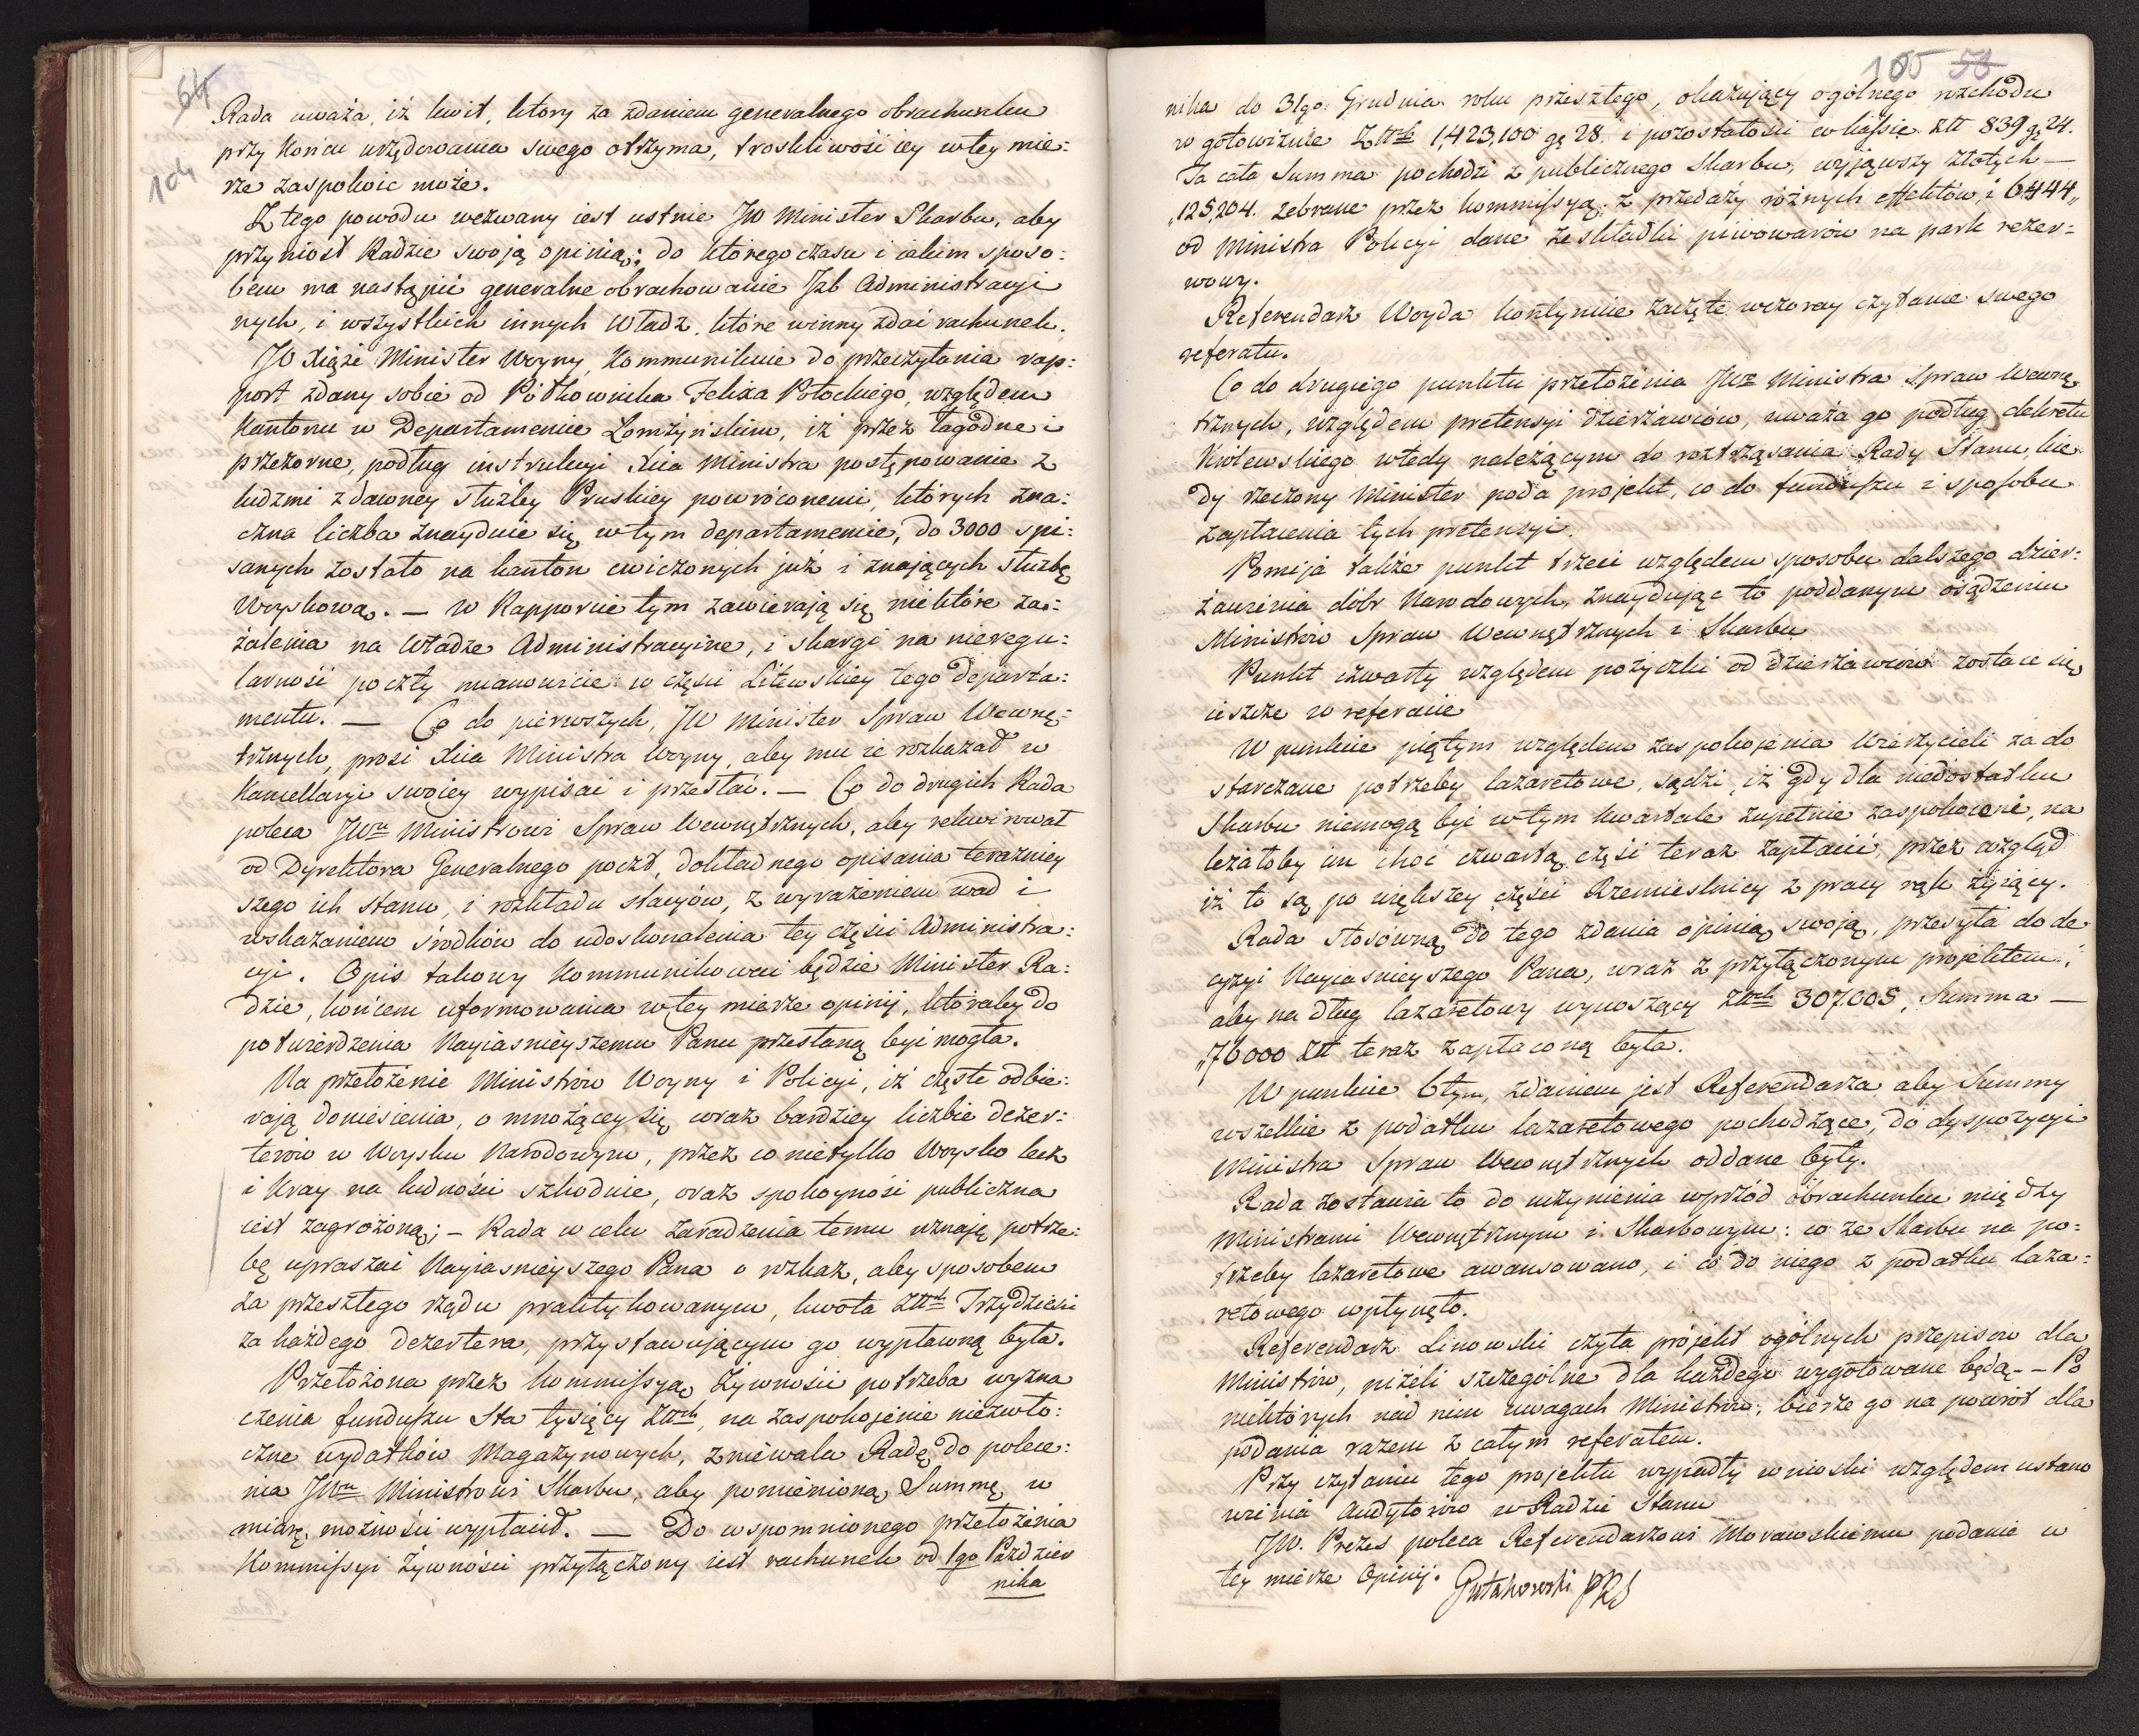 64
104
Rada uważa, iż kwit, ktory za zdaniem generalnego obrachunku
przy końcu urzędowania swego otrzyma, troskliwość iey wtey mie:
rze zaspokoić może.
Z tego powodu wezwany iest ustnie JW Minister Skarbu, aby
przyniosł Radzie swoją opinią; do którego czasu i iakim sposo:
bem ma nastąpić generalne obrachowanie Izb Administracyi
nych, i wszystkich innych Władz, które winny zdać rachunek.
JO Xiąże Minister Woyny, kommunikuie do przeczytania rap:
port zdany sobie od Półkownika Felixa Potockiego, względem
Kantonu w Departamencie Łomżyńskim, iż przez łagodne i
przezorne, podług instrukcyi Xcia Ministra postępowanie z
ludzmi z dawney służby Pruskiey powróconemi, których zna:
czna liczba znayduie się w tym departamencie, do 3000 spi:
sanych zostało na kanton cwiczonych już i znających służbę
Woyskową. — W Rapporcie tym zawierają się niektóre zaż:
żalenia na Władze Administracyine, i skargi na nieregu:
larność poczty mianowicie w części Litewskiey tego Departa:
mentu. — Co do pierwszych, JW Minister Spraw Wewnę:
trznych, prosi Xcia Ministra Woyny, aby mu ie rozkazał w
Kancellaryi swoiey wypisać i przesłać. — Co do drugich Rada
poleca JWu Ministrowi Spraw Wewnętrznych, aby rekwirował
od Dyrektora Generalnego poczt, dokładnego opisania teraźniey
szego ich stanu, i rozkładu stacyów, z wyrażeniem wad i
wskazaniem środków do udoskonalenia tey części Administra:
cyi. Opis takowy kommunikować będzie Minister Ra:
dzie, końcem uformowania wtey mierze opinij, któraby do
potwierdzenia Nayiasnieyszemu Panu przesłaną być mogła.
Na przełożenie Ministrów Woyny i Policyi, iż częste odbie:
rają doniesienia, o mnożącey się coraz bardziey liczbie dezer:
terów w Woysku Narodowym, przez co nietylko Woysko lecz
i Kray na ludności szkoduie, oraz spokoyność publiczna
iest zagrożoną; — Rada w celu zaradzenia temu uznaję potrze:
bę upraszać Nayiasnieyszego Pana o rozkaz, aby sposobem
za przeszłego rządu praktykowanym, kwota Złtch Trzydzieści
za każdego dezertera, przystawującym go wypłacaną była.
Przełożona przez Kommissyą Żywności potrzeba wyzna
czenia funduszu Sta tysięcy Złtch, na zaspokojenie niezwło:
czne wydatków Magazynowych, zniewala Radę do polece:
nia JWu Ministrowi Skarbu, aby pomienioną Summę, w
miarę możności wypłacił. — Do wspomnionego przełożenia
Kommissyi Żywności przyłączony iest rachunek od 1go Paździer
nika
105 53
nika do 31go Grudnia roku przeszłego, okazujący ogólnego rozchodu
w gotowiznie Złtch 1,423,100 gę 28. i pozostałości w kassie Złt 839 gę 24.
Ta cała Summa pochodzi z publicznego Skarbu, wyjąwszy złotych —
"125,204. zebrane przez kommissyą; z przedaży różnych effektów, i 6444"
od Ministra Policyi dane ze składki piwowarów na park rezer:
wowy.
Referendarz Woyda kontynuie zaczęte wczoray czytanie swego
referatu.
Co do drugiego punktu przełożenia JWo Ministra Spraw Wewnę
trznych, względem pretensyi dzierżawców, uważa go podług dekretu
Królewskiego wtedy należącym do roztrząsania Rady Stanu, kie
dy rzeczony Minister poda projekt, co do funduszu i sposobu
zapłacenia tych pretensyi.
Pomija także punkt trzeci względem sposobu dalszego dzier:
żawienia dóbr Narodowych, znayduiąc to poddanym osądzeniu
Ministrów Spraw Wewnętrznych i Skarbu
Punkt czwarty względem pożyczki od dzierżawców zostaie się
ieszcze w referacie
W punkcie piątym względem zaspokojenia Wierzycieli za do
starczane potrzeby lazaretowe, sądzi, iż gdy dla niedostatku
Skarbu niemogą być w tym kwartale zupełnie zaspokoieni, na
leżałoby im choć czwartą część teraz zapłacić, przez wzgląd
iż to są po większey części Rzemieślnicy z pracy rąk żyiący.
Rada stosowną do tego zdania opinią swoją, przesyła do de
cyzyi Nayiasnieyszego Pana, wraz z przyłączonym projektem,
aby na dług lazaretowy wynoszący Złtch 307.005, Summa —
"76000 Złt teraz zapłaconą była.
W punkcie 6tym, zdaniem jest Referendarza aby Summy
wszelkie z podatku lazaretowego pochodzące, do dyspozycyi
Ministra Spraw Wewnętrznych oddane były.
Rada zostawia to do uczynienia wprzód obrachunku między
Ministrami Wewnętrznym i Skarbowym: co ze Skarbu na po:
trzeby lazaretowe awansowano, i co do niego z podatku laza:
retowego wpłynęło.
Referendarz Linowski czyta projekt ogólnych przepisów dla
Ministrów, niżeli szczególne dla każdego wygotowane będą. — Po
niektórych nad nim uwagach Ministrów, bierze go na powrót dla
podania razem z całym referatem.
Przy czytaniu tego projektu wypadły wnioski względem ustano
wienia Audytorów w Radzie Stanu
JW. Prezes poleca Referendarzowi Morawskiemu podanie w
tey mierze Opinij. Gutakowski PRS